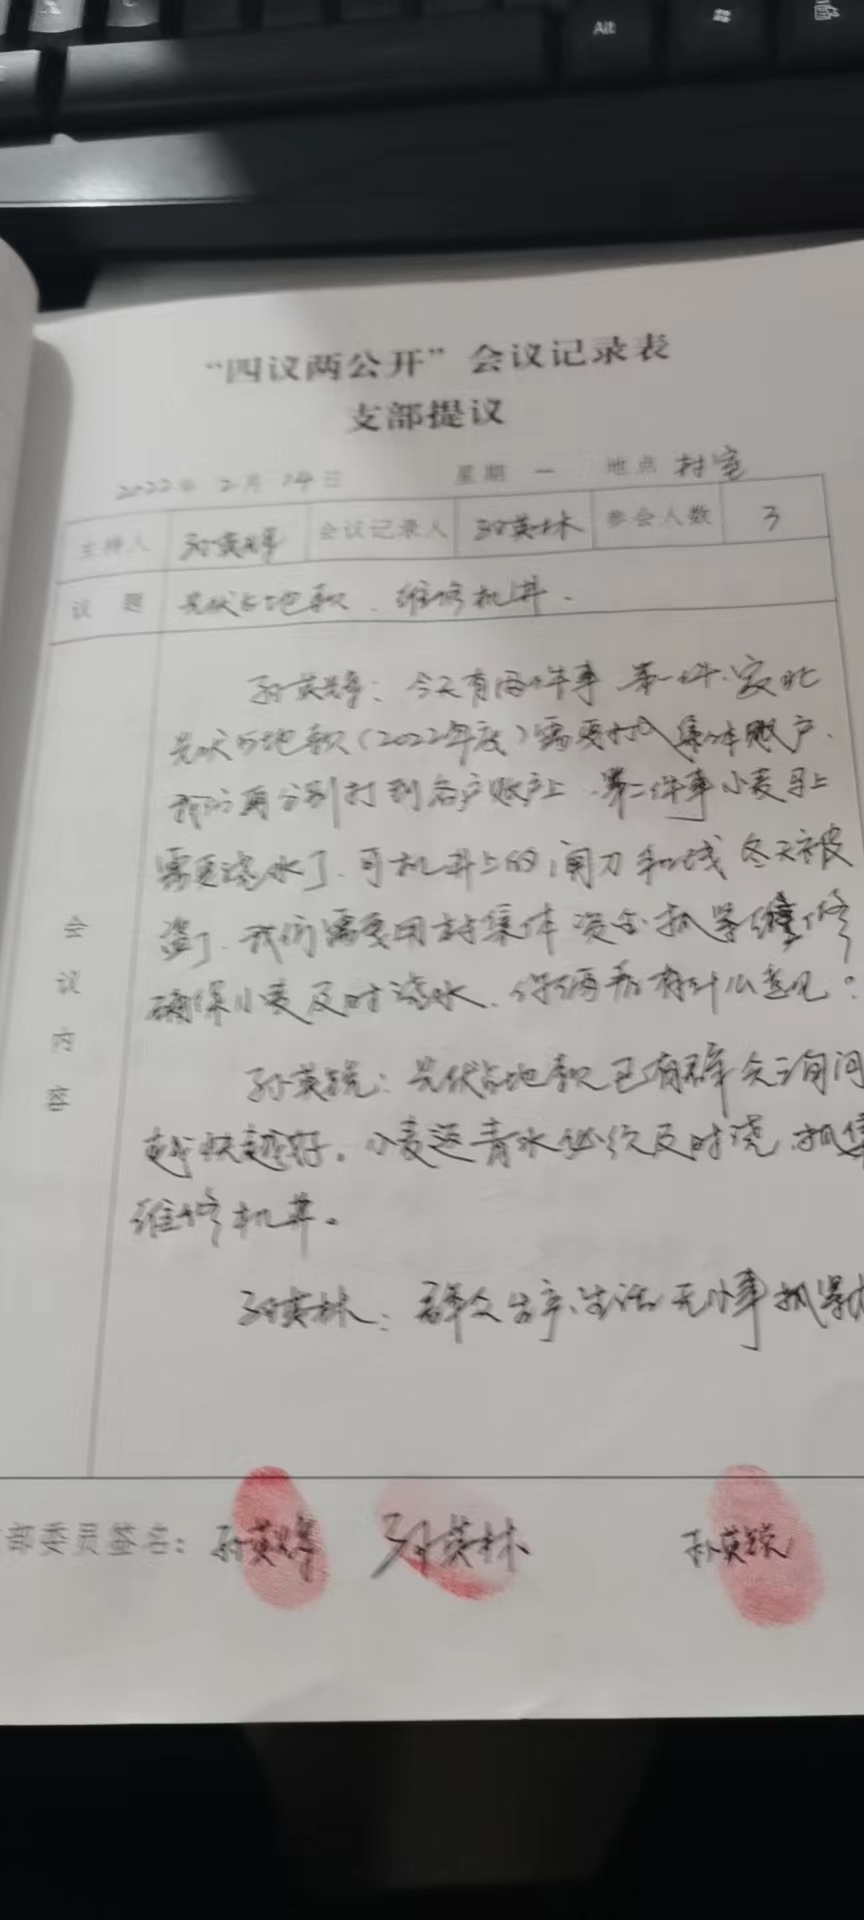 Alt
“四议两公开”会议记录表
支部提议
2022年 2月 14日 星期 一 地点 村室
主持人 孙英辉 会议记录人 孙英林 参会人数 3
议 题 光伏占地款、维修机井.
会议内容
孙英辉：今天有两件事.第一件.家北
光伏占地款(2022年度)需要打到集体账户.
我们再分别打到各户账户上.第二件事小麦马上
需要浇水了.可机井上的闸刀和线冬天被
盗了.我们需要用村集体资金抓紧维修
确保小麦及时浇水.你俩看有什么意见?
孙英锐：光伏占地款已有群众询问
越快越好。小麦返青水必须及时浇.抓紧
维修机井。
孙英林：群众生产、生活无小事抓紧
部委员签名: 孙英辉 孙英林 孙英锐